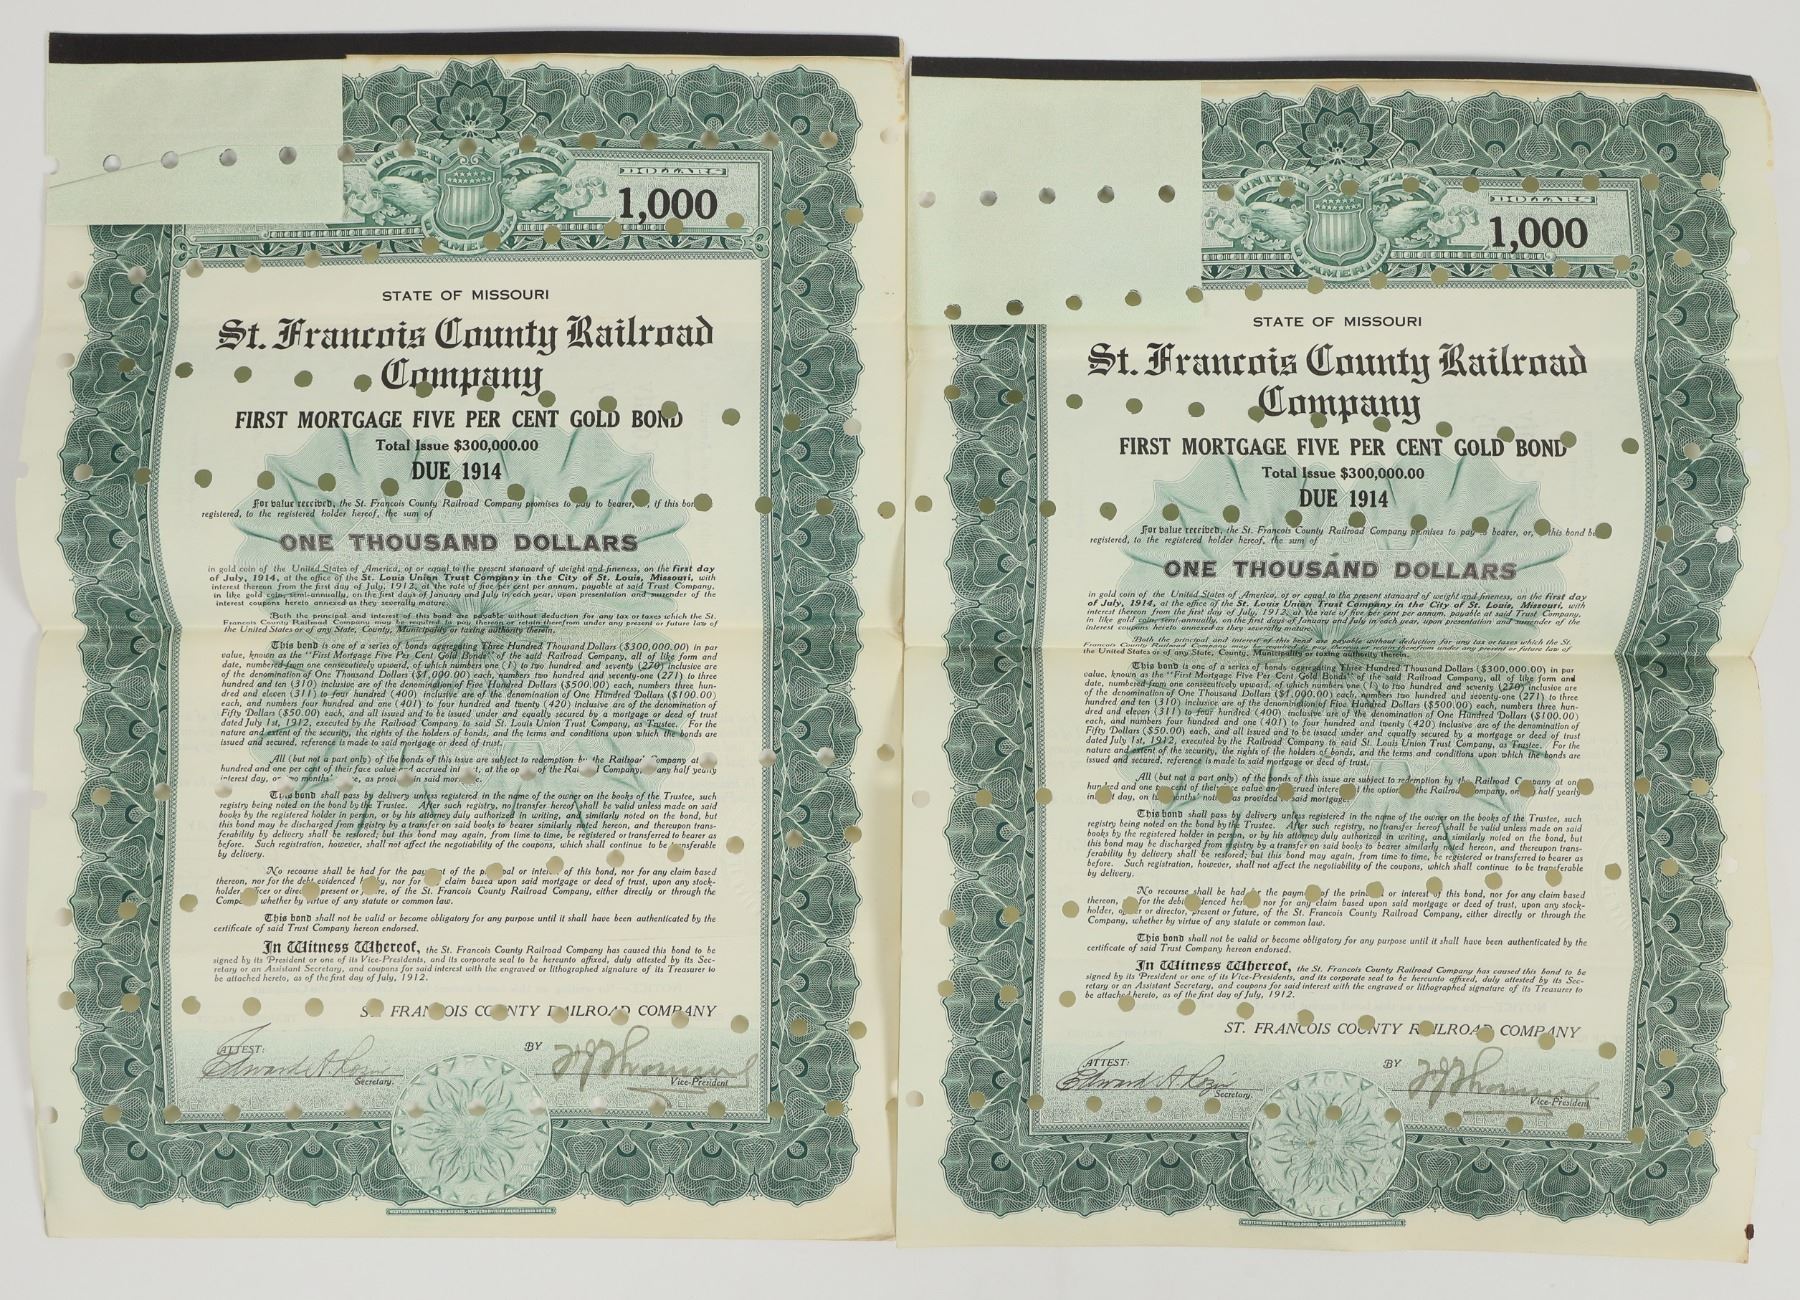 UNITED STATES
OF AMERICA
DOLLARS
1,000
STATE OF MISSOURI
St. Francois County Railroad
Company
FIRST MORTGAGE FIVE PER CENT GOLD BOND
Total Issue $300,000.00
DUE 1914
For value received, the St. Francois County Railroad Company promises to pay to bearer, if this
registered, to the registered holder hereof, the sum of
ONE THOUSAND DOLLARS
in gold coin of the United States of America, of or equal to the present standard of weight and fineness, on the first day
of July, 1914, at the office of the St. Louis Union Trust Company in the City of St. Louis, Missouri, with
interest thereon from the first day of July, 1912, at the rate of five per cent per annum, payable at said Trust Company,
in like gold coin, semi-annually, on the first days of January and July in each year, upon presentation and surrender of the
interest coupons hereto annexed as they severally mature.
Both the principal and interest of this bond are payable without deduction for any tax or taxes which the St.
Francois County Railroad Company may be required to pay thereon or retain therefrom under any present or future law of
the United States or of any State, County, Municipality or taxing authority therein.
This bond is one of a series of bonds aggregating Three Hundred Thousand Dollars ($300,000.00) in par
value, known as the "First Mortgage Five Per Cent Gold Bonds" of the said Railroad Company, all of like form and
date, numbered from one consecutively upward, of which numbers one (1) to two hundred and seventy (270) inclusive are
of the denomination of One Thousand Dollars ($1,000.00) each, numbers two hundred and seventy-one (271) to three
hundred and ten (310) inclusive are of the denomination of Five Hundred Dollars ($500.00) each, numbers three hun-
dred and eleven (311) to four hundred (400) inclusive are of the denomination of One Hundred Dollars ($100.00)
each, and numbers four hundred and one (401) to four hundred and twenty (420) inclusive are of the denomination of
Fifty Dollars ($50.00) each, and all issued and to be issued under and equally secured by a mortgage or deed of trust
dated July 1st, 1912, executed by the Railroad Company to said St. Louis Union Trust Company, as Trustee. For the
nature and extent of the security, the rights of the holders of bonds, and the terms and conditions upon which the bonds are
issued and secured, reference is made to said mortgage or deed of trust.
All (but not a part only) of the bonds of this issue are subject to redemption by the Railroad Company at
hundred and one per cent of their face value and accrued at the of the Railroad Company, any half yearly
interest day, on months' as provided in said
This bond shall pass by delivery unless registered in the name of the owner on the books of the Trustee, such
registry being noted on the bond by the Trustee. After such registry, no transfer hereof shall be valid unless made on said
books by the registered holder in person, or by his attorney duly authorized in writing, and similarly noted on the bond, but
this bond may be discharged from registry by a transfer on said books to bearer similarly noted hereon, and thereupon trans-
ferability by delivery shall be restored; but this bond may again, from time to time, be registered or transferred to bearer as
before. Such registration, however, shall not affect the negotiability of the coupons, which shall continue to be transferable
by delivery.
No recourse shall be had for the payment of the principal or interest of this bond, nor for any claim based
thereon, nor for the debt evidenced hereby, nor for claim based upon said mortgage or deed of trust, upon any stock-
holder, officer or director, present or future, of the St. Francois County Railroad Company, either directly or through the
Company, whether by virtue of any statute or common law.
This bond shall not be valid or become obligatory for any purpose until it shall have been authenticated by the
certificate of said Trust Company hereon endorsed.
In Witness Whereof, the St. Francois County Railroad Company has caused this bond to be
signed by its President or one of its Vice-Presidents, and its corporate seal to be hereunto affixed, duly attested by its Sec-
retary or an Assistant Secretary, and coupons for said interest with the engraved or lithographed signature of its Treasurer to
be attached hereto, as of the first day of July, 1912.
ST. FRANCOIS COUNTY RAILROAD COMPANY
ATTEST: BY
Edward A. Rozier
Secretary. Vice-President
UNITED STATES
OF AMERICA
DOLLARS
1,000
STATE OF MISSOURI
St. Francois County Railroad
Company
FIRST MORTGAGE FIVE PER CENT GOLD BOND
Total Issue $300,000.00
DUE 1914
For value received, the St. Francois County Railroad Company promises to pay to bearer, or, this bond be
registered, to the registered holder hereof, the sum of
ONE THOUSAND DOLLARS
in gold coin of the United States of America, of or equal to the present standard of weight and fineness, on the first day
of July, 1914, at the office of the St. Louis Union Trust Company in the City of St. Louis, Missouri, with
interest thereon from the first day of July, 1912, at the rate of five per cent per annum, payable at said Trust Company,
in like gold coin, semi-annually, on the first days of January and July in each year, upon presentation and surrender of the
interest coupons hereto annexed as they severally mature.
Both the principal and interest of this bond are payable without deduction for any tax or taxes which the St.
Francois County Railroad Company may be required to pay thereon or retain therefrom under any present or future law of
the United States or of any State, County, Municipality or taxing authority therein.
This bond is one of a series of bonds aggregating Three Hundred Thousand Dollars ($300,000.00) in par
value, known as the "First Mortgage Five Per Cent Gold Bonds" of the said Railroad Company, all of like form and
date, numbered from one consecutively upward, of which numbers one (1) to two hundred and seventy (270) inclusive are
of the denomination of One Thousand Dollars ($1,000.00) each, numbers two hundred and seventy-one (271) to three
hundred and ten (310) inclusive are of the denomination of Five Hundred Dollars ($500.00) each, numbers three hun-
dred and eleven (311) to four hundred (400) inclusive are of the denomination of One Hundred Dollars ($100.00)
each, and numbers four hundred and one (401) to four hundred and twenty (420) inclusive are of the denomination of
Fifty Dollars ($50.00) each, and all issued and to be issued under and equally secured by a mortgage or deed of trust
dated July 1st, 1912, executed by the Railroad Company to said St. Louis Union Trust Company, as Trustee. For the
nature and extent of the security, the rights of the holders of bonds, and the terms and conditions upon which the bonds are
issued and secured, reference is made to said mortgage or deed of trust.
All (but not a part only) of the bonds of this issue are subject to redemption by the Railroad Company at one
hundred and one per cent of their face value and accrued interest at the option of the Railroad Company, on half yearly
interest day, on months' notice as provided in said mortgage.
This bond shall pass by delivery unless registered in the name of the owner on the books of the Trustee, such
registry being noted on the bond by the Trustee. After such registry, no transfer hereof shall be valid unless made on said
books by the registered holder in person, or by his attorney duly authorized in writing, and similarly noted on the bond, but
this bond may be discharged from registry by a transfer on said books to bearer similarly noted hereon, and thereupon trans-
ferability by delivery shall be restored; but this bond may again, from time to time, be registered or transferred to bearer as
before. Such registration, however, shall not affect the negotiability of the coupons, which shall continue to be transferable
by delivery.
No recourse shall be had for the payment of the principal or interest of this bond, nor for any claim based
thereon, for the debt evidenced hereby nor for any claim based upon said mortgage or deed of trust, upon any stock-
holder, officer or director, present or future, of the St. Francois County Railroad Company, either directly or through the
Company, whether by virtue of any statute or common law.
This bond shall not be valid or become obligatory for any purpose until it shall have been authenticated by the
certificate of said Trust Company hereon endorsed.
In Witness Whereof, the St. Francois County Railroad Company has caused this bond to be
signed by its President or one of its Vice-Presidents, and its corporate seal to be hereunto affixed, duly attested by its Sec-
retary or an Assistant Secretary, and coupons for said interest with the engraved or lithographed signature of its Treasurer to
be attached hereto, as of the first day of July, 1912.
ST. FRANCOIS COUNTY RAILROAD COMPANY
ATTEST: BY
Edward A. Rozier
Secretary. Vice-President